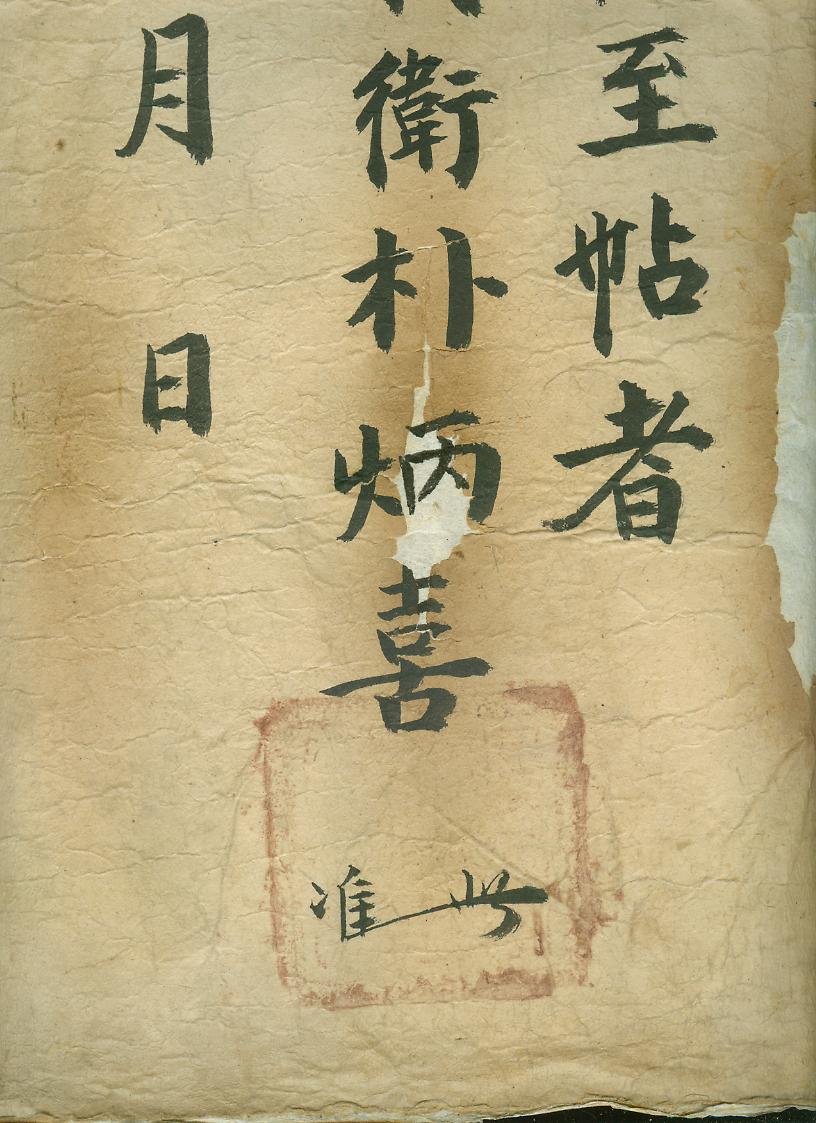 至帖者
衛朴炳喜
准此
月日